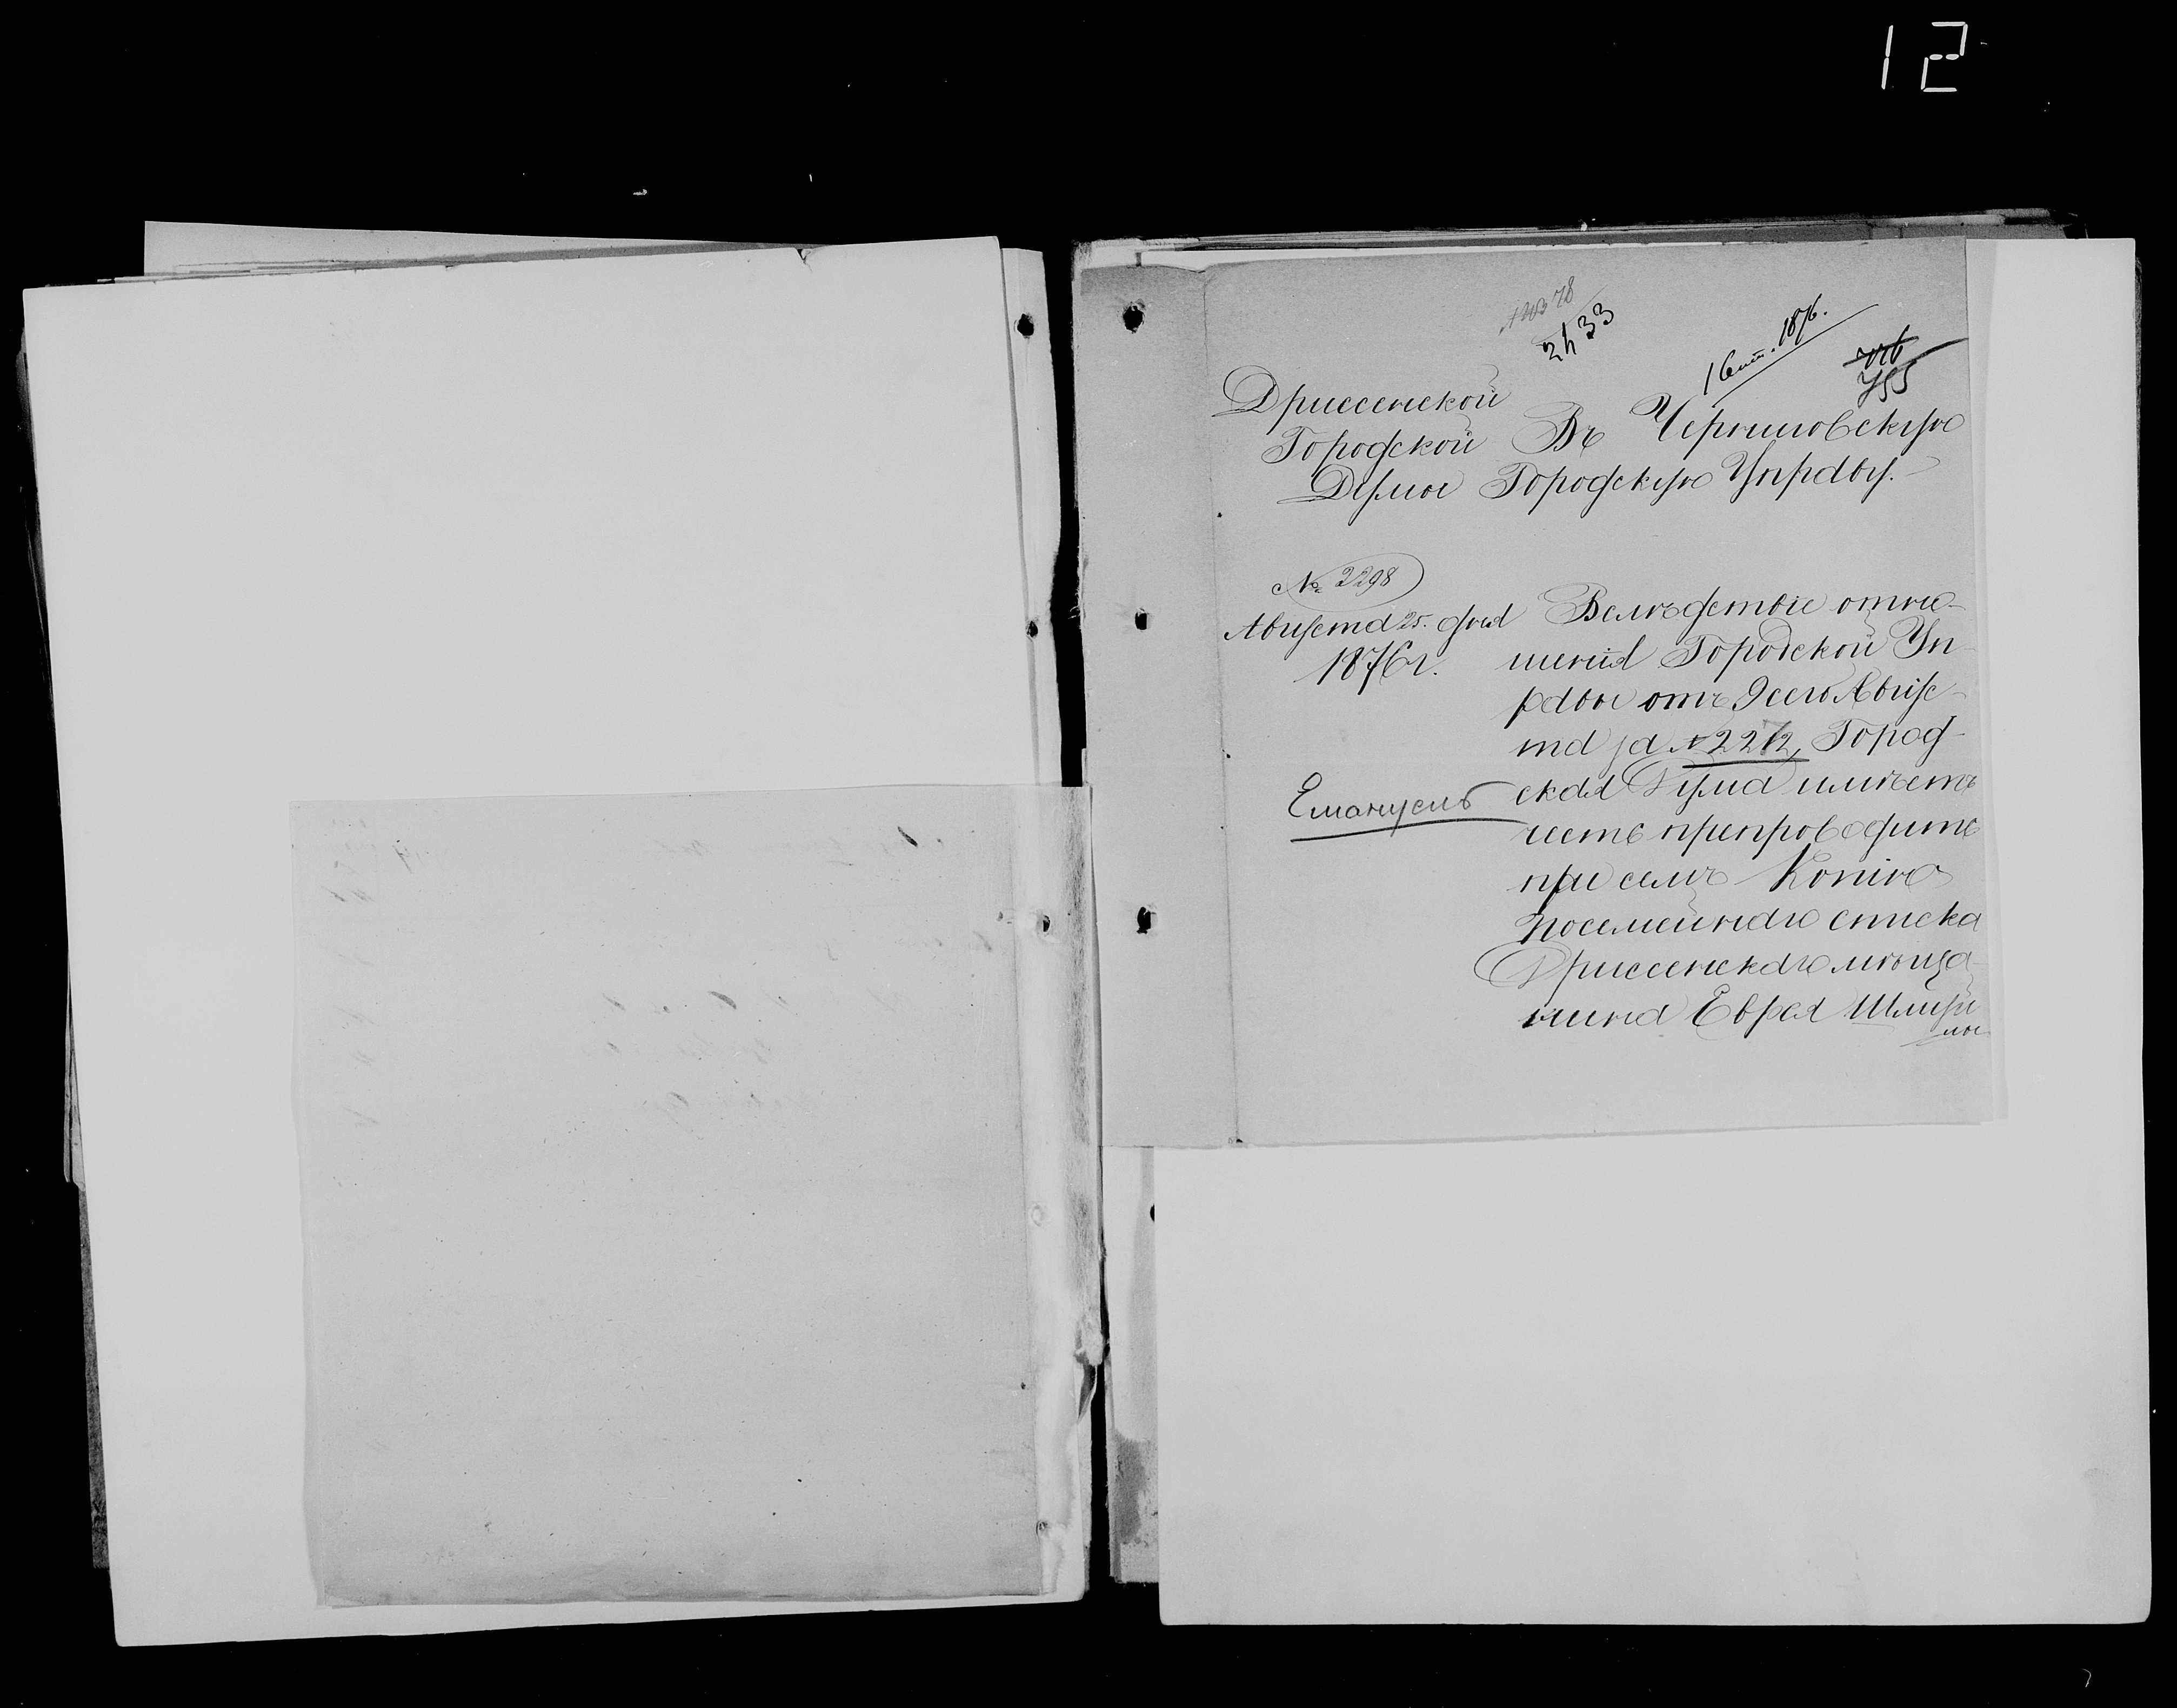 12
2433
1 Сент. 1876.
755
Дриссенской
Городской
Думы
Въ Черниговскую
Городскую Управу.
№ 2298
Августа 25 дня
1876 г.
Емануель
Вслѣдствіе отно-
шенія Городской Уп-
равы отъ 9 сего Авгус-
та за № 2272, Город-
ская Дума имѣетъ
честь препроводить
при семъ Копію
посемейнаго списка
Дриссенскаго мѣща
нина Еврея Шмуй
лы